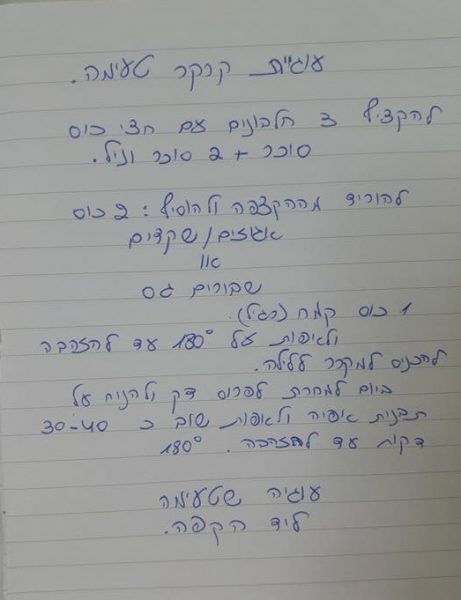 עוגיית קרקר טעימה.
להקציף 3 חלבונים עם חצי כוס
סוכר + 2 סוכר וניל.
להוריד מההקצפה ולהוסיף: 2 כוס
אגוזים/שקדים
או
שבורים גס
1 כוס קמח (רגיל).
ולאפות על 180° עד להזהבה
להכניס למקרר ללילה.
ביום למחרת לפרוס דק ולהניח על
תבנית אפיה ולאפות שוב כ 30-40
דקות עד להזהבה. 180°
עוגיה שטעימה
ליד הקפה.